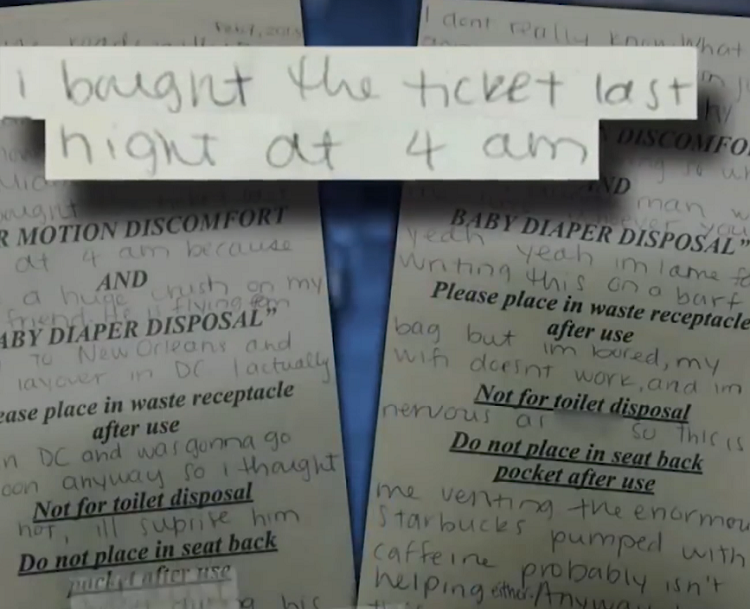 Feb 7, 2015
i bought the ticket last
night at 4 am
R MOTION DISCOMFORT
at 4 am because
AND
a huge crush on my
friend. He is flying from
ABY DIAPER DISPOSAL"
to New Orleans and
layover in DC I actually
ease place in waste receptacle
after use
n DC and was gonna go
oon anyway so i thought
Not for toilet disposal
not, ill suprise him
Do not place in seat back
pocket after use
during his
I dont really know what
DISCOMFO
AND
man w
BABY DIAPER DISPOSAL"
yeah yeah im lame fo
writing this on a barf
Please place in waste receptacle
after use
bag but im bored, my
wifi doesnt work, and im
Not for toilet disposal
nervous as so this is
Do not place in seat back
pocket after use
me venting the enormou
Starbucks pumped with
caffeine probably isn't
helping either. Anyw